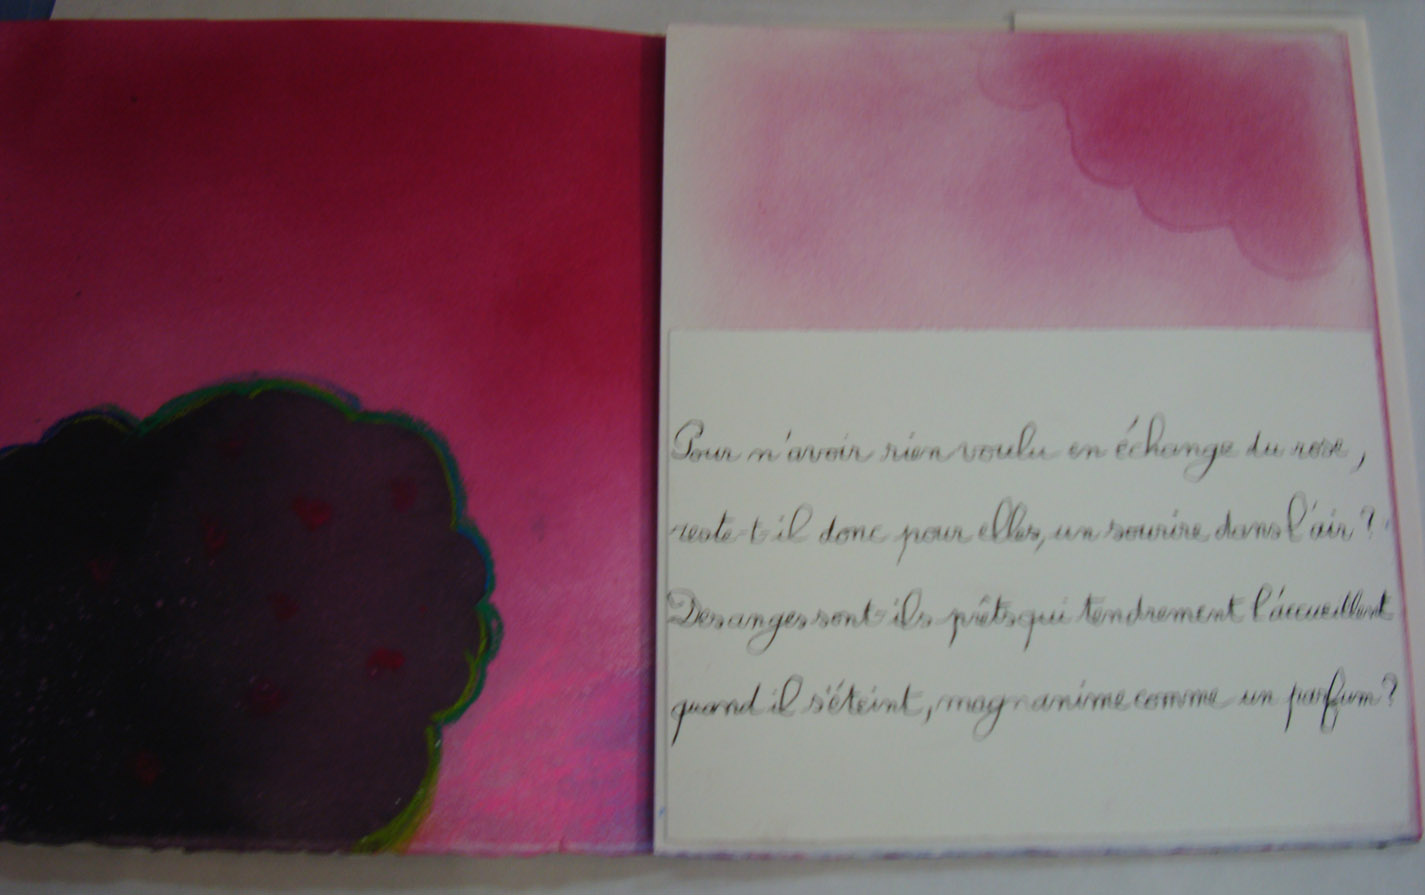 Pour n'avoir rien voulu en échange du rose,
reste-t-il donc pour elles, un sourire dans l'air ?
Des anges sont-ils prêts qui tendrement l'accueillent
quand il s'éteint, magnanime comme un parfum ?